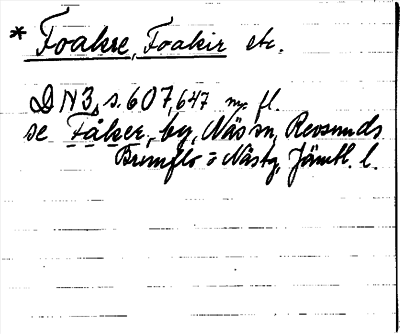 * Foakre, Foakir etc.
DN3, s. 607, 647 m. fl.
se Fåker, by, Näs sn, Revsunds
Brunflo o Näs tg, Jämtl. l.